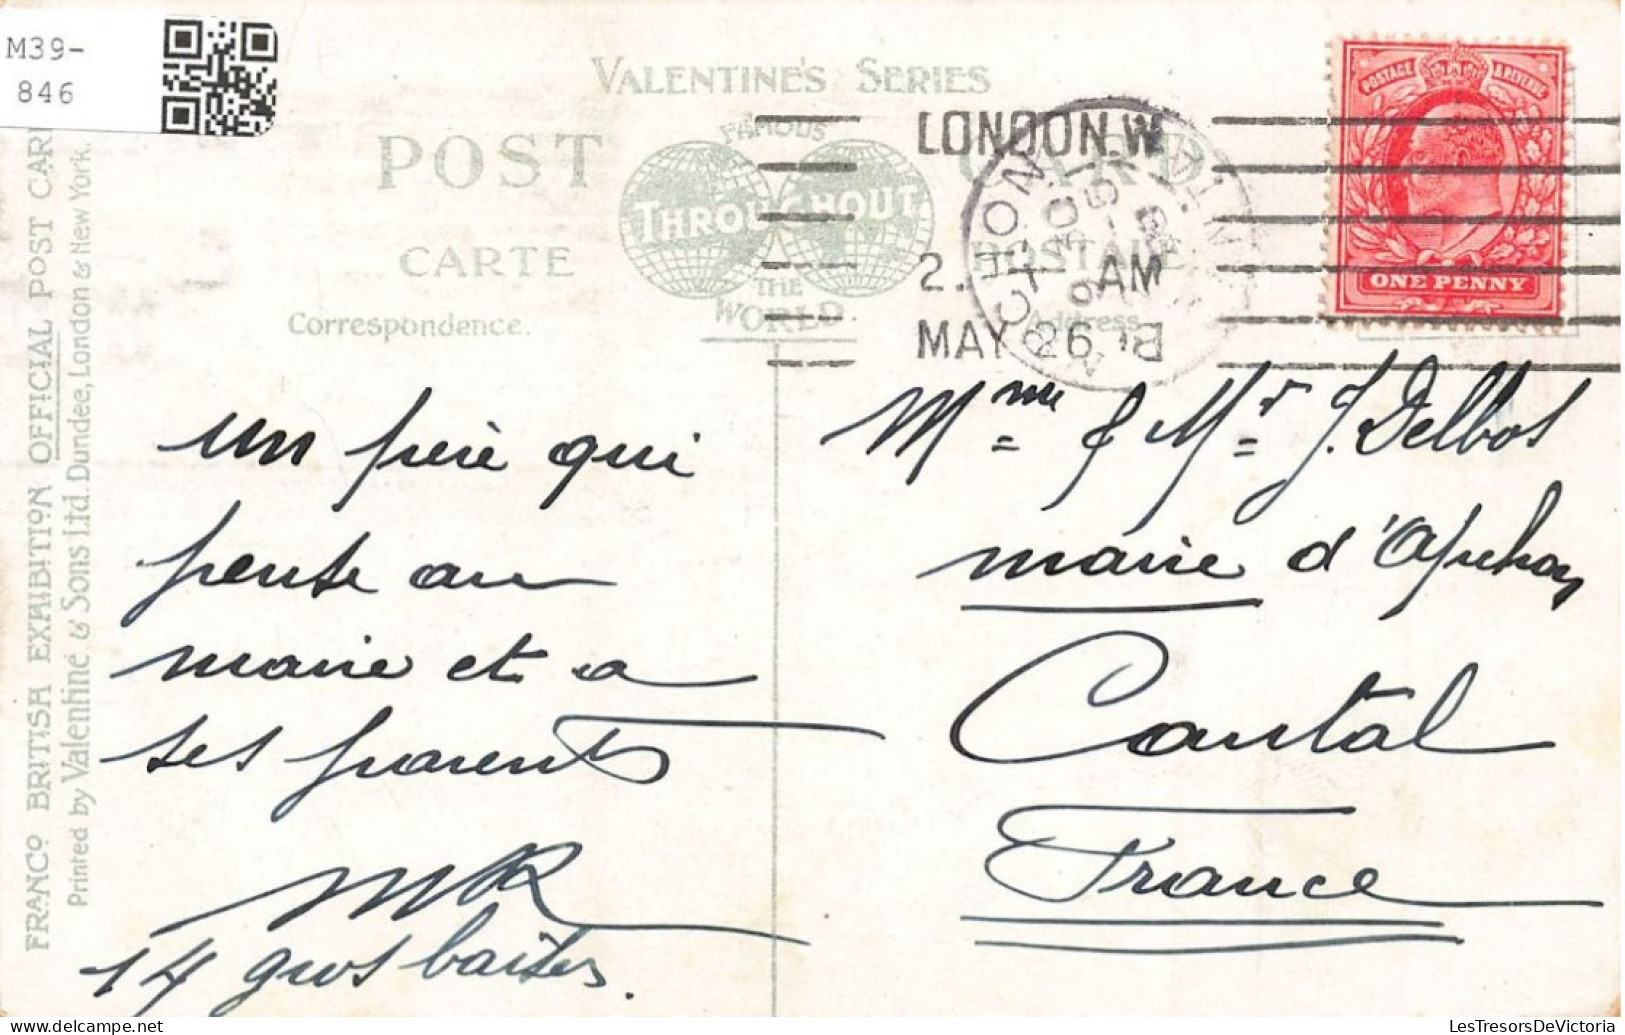 M39-
846
VALENTINE'S SERIES
POST CARD
FAMOUS
THROUGHOUT
THE
WORLD
CARTE POSTALE
Correspondence.
Address
LONDON.W
2. AM
MAY 26
POSTAGE & REVENUE
ONE PENNY
FRANCO BRITISH EXHIBITION OFFICIAL POST CARD
Printed by Valentine & Sons Ltd. Dundee, London & New York.
un frère qui
pense au
maire et a
ses parents
MR
14 gros baisers.
Mme & Mr J. Delbos
maire d'Apchon
Cantal
France
LesTresorsDeVictoria